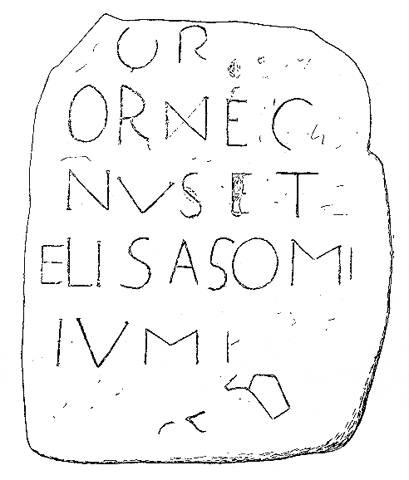 OR
ORNEC
NVSET
ELISASOMI
IVMI